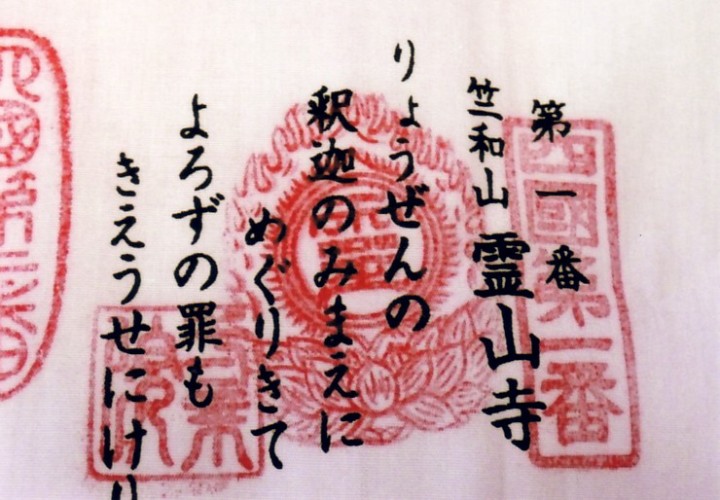 第一番
竺和山 霊山寺
りょうぜんの
釈迦のみまえに
めぐりきて
よろずの罪も
きえうせにけり
四國第一番